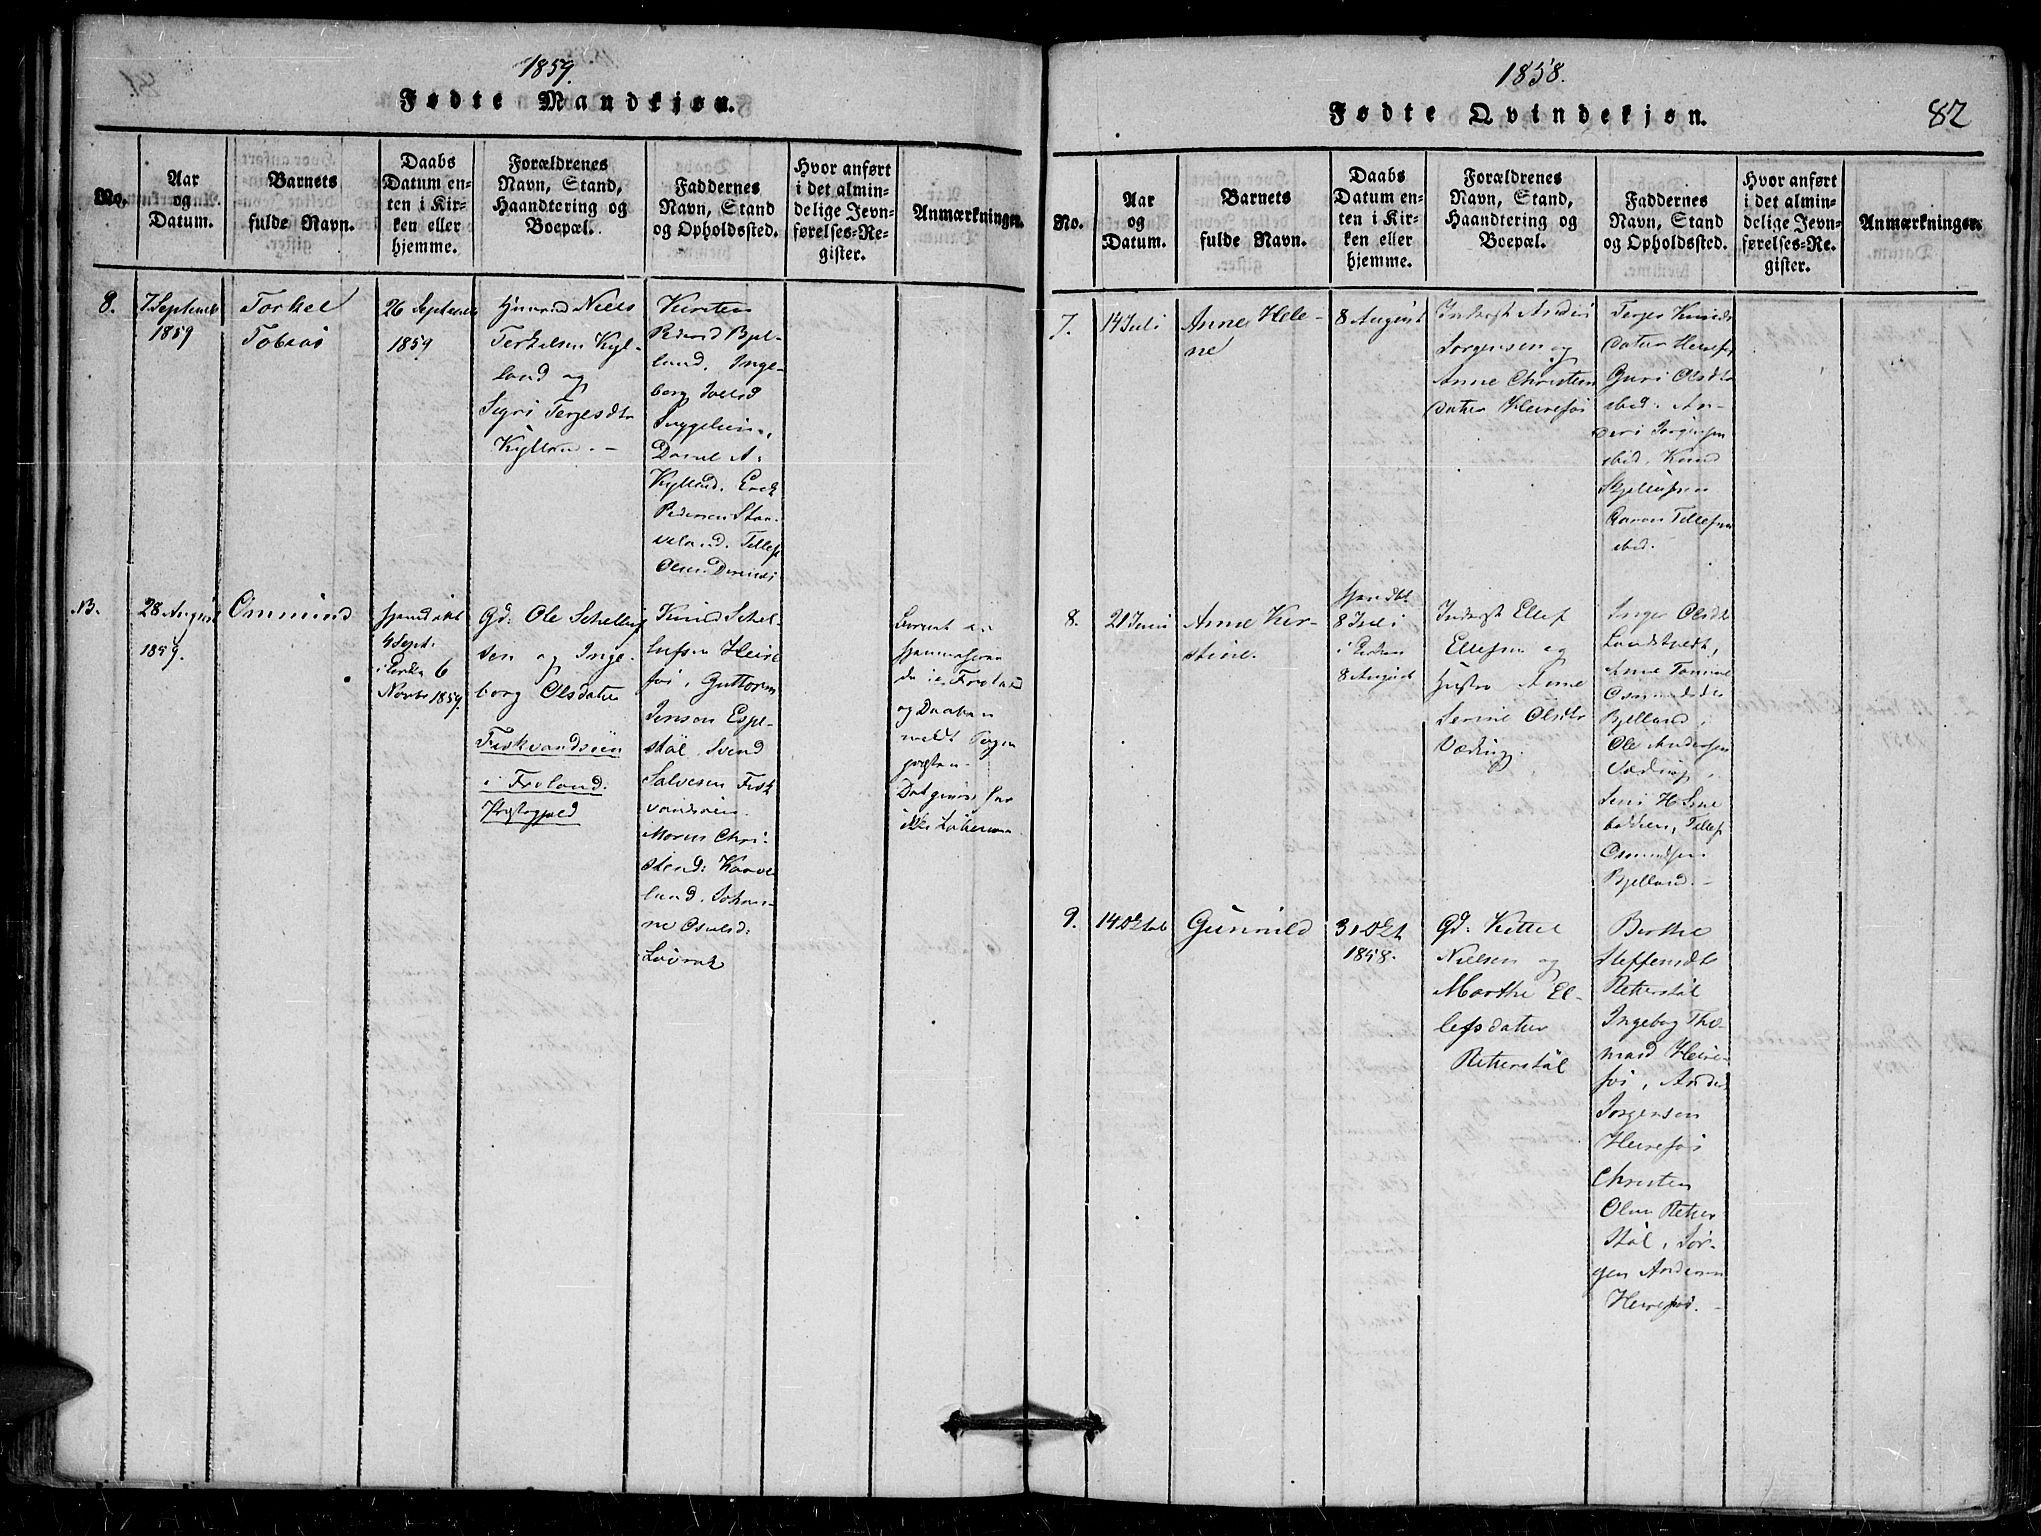 1859.
Fødte Mandkjøn.
No.
Aar
og
Datum.
Barnets
fulde Navn.
Daabs
Datum en-
ten i Kir-
ken eller
hjemme.
Forældrenes
Navn, Stand,
Haandtering og
Boepæl.
Faddernes
Navn, Stand
og Opholdssted.
Hvor anført
i det almin-
delige Jevn-
førelses-Re-
gister.
Anmærkninger.
8.
7 September
1859
Torkel
Tobias
26 September
1859
Niels
Terkelsen Kyl-
land og
Sigri Terjesdtr
Kylland. -
Kirsten
Pedersd Bjel-
land. Inge-
borg
Daniel A.
Kylland. Erik
Pedersen Sten-
veland. Tellef
Olsen
NB.
28 August
1859.
Ommund
hjemdøbt
4 Sept.
i Kirken 6
Novbr 1859.
Gd: Ole Schellef
sen og Inge-
borg Olsdatter
Fiskvandsein
i Froland
Præstegjeld
Knud Schel-
lefsen Heire
fos, Guttorm
Jensen Espe-
støl. Svend
Salvesen Fisk
vandsein
Maren Chri-
stend: Kaave
land. Johan-
ne Osulsd:
Løvrak
hjemmehøren
de i Froland
og Daaben
meldt Sogne
præsten.
1858.
Fødte Qvindekjøn.
82
No.
Aar
og
Datum.
Barnets
fulde Navn.
Daabs
Datum en-
ten i Kir-
ken eller
hjemme.
Forældrenes
Navn, Stand,
Haandtering og
Boepæl.
Faddernes
Navn, Stand
og Opholdssted.
Hvor anført
i det almin-
delige Jevn-
førelses-Re-
gister.
Anmærkninger.
7.
14 Juli
Anne Hele-
ne
8 August
Inderst Anders
Jørgensen og
Anne Christens
datter Heirefos
Terjer Knuds
datter Heirefos
Guri Olsdtr
ibid. An-
ders Jørgensen
ibid. Knud
Skjellefsen
Aanon Tellefsen
ibid.
8.
21 Juni
Anne Kir-
stine.
hjemdøbt
8 Juli
i Kirken
8 August
Inderst Ellef
Ellefsen og
Hustru Anne
Serine Olsdtr
Væting.
Inger Olsdtr
Landstvedt,
Anne Tomine
Osmundsdtr
Bjelland,
Ole Andersen
Væting,
Jens H.
Tellef
Osmundsen
Bjelland. -
9.
14 Oktob
Gunnild
31 Okt
1858.
Gd: Kittel
Nielsen og
Marthe El-
lefsdatter
Retterstøl
Berthe
Steffensdtr
Retterstøl
Ingeborg Tho-
masd Heire-
fos, Anders
Jørgensen
Heirefos
Christen
Olsen Retter
støl, Jør-
gen Andersen
Heirefos. -